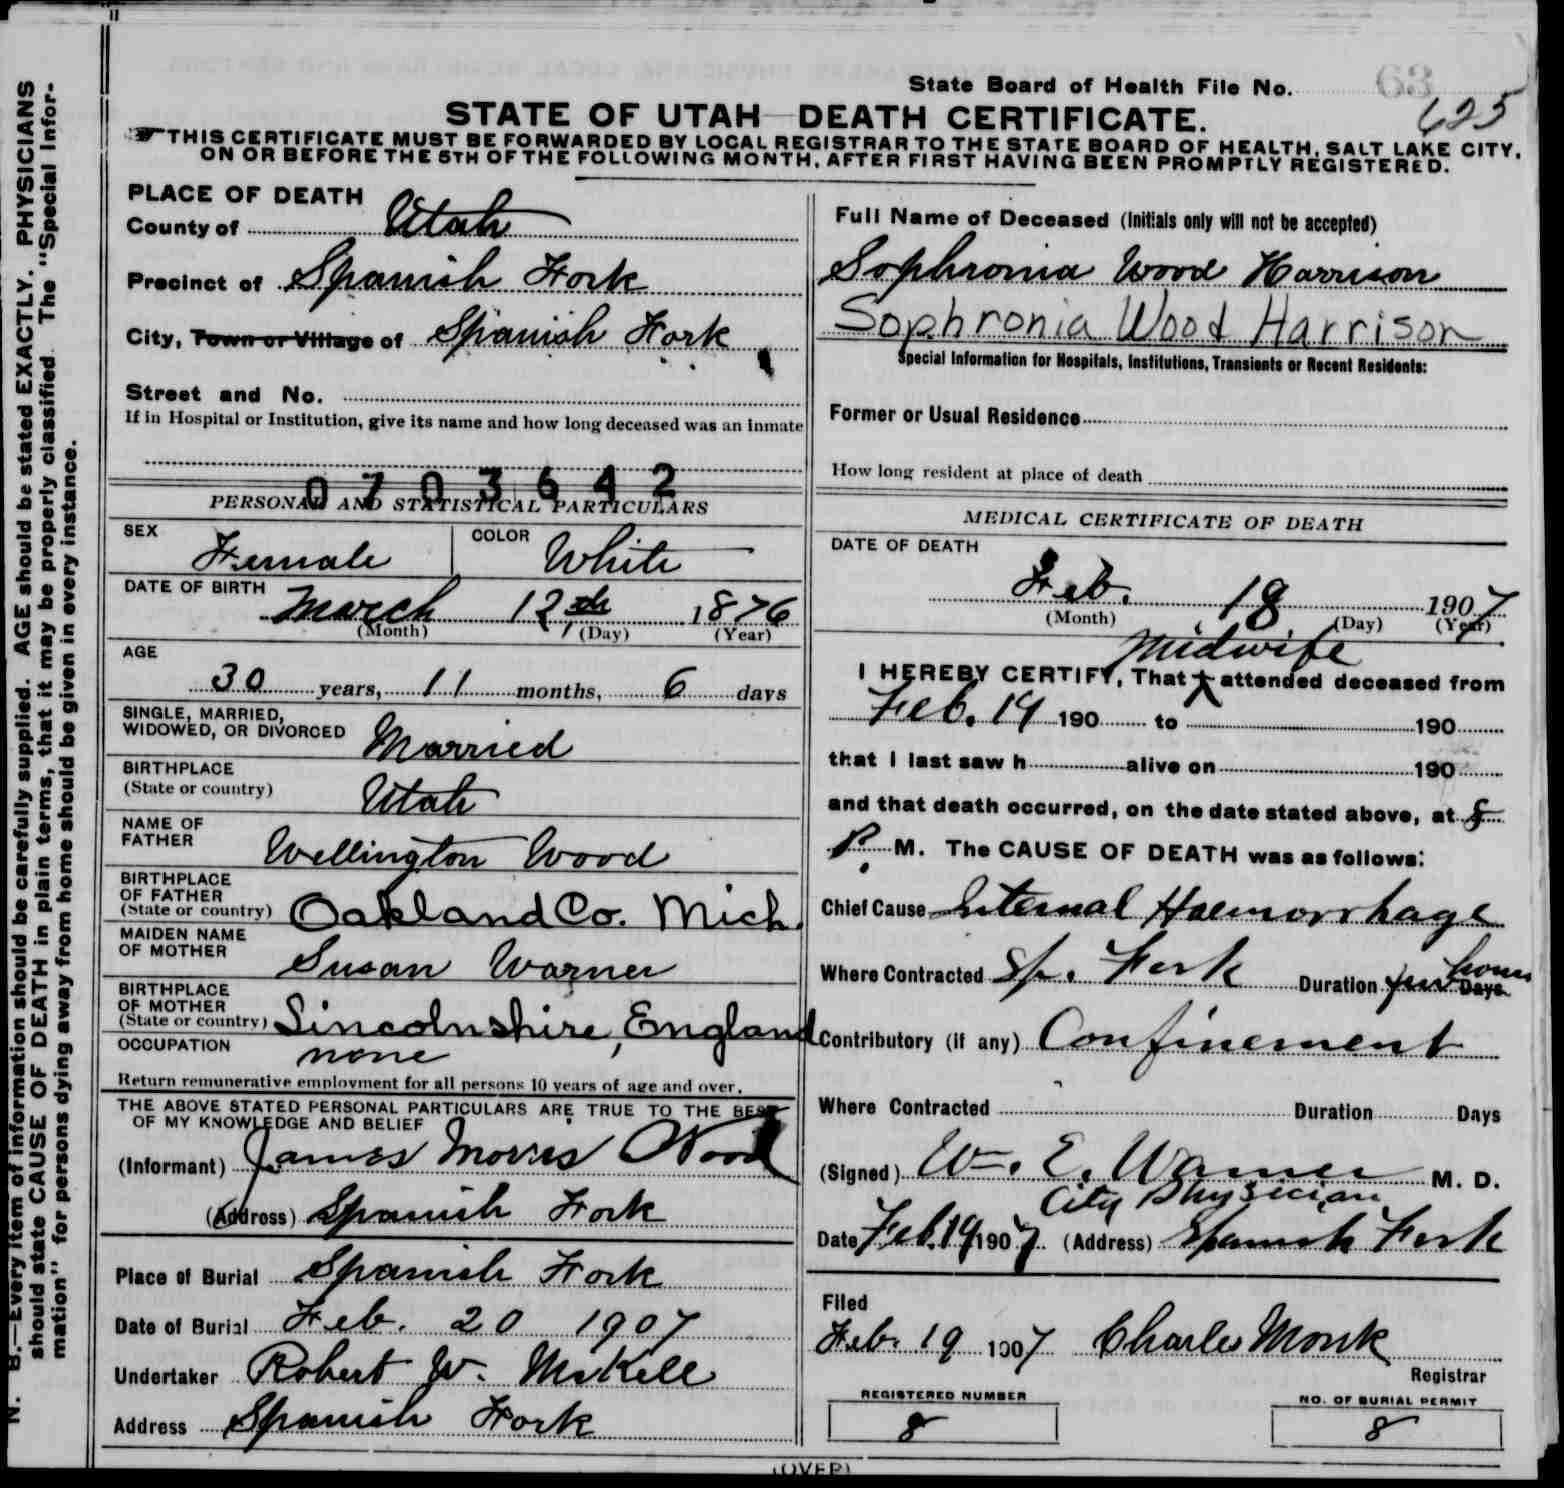 N. B.—Every item of information should be carefully supplied. AGE should be stated EXACTLY. PHYSICIANS
should state CAUSE OF DEATH in plain terms, that it may be properly classified. The "Special Infor-
mation" for persons dying away from home should be given in every instance.
State Board of Health File No. 63
625
STATE OF UTAH—DEATH CERTIFICATE.
THIS CERTIFICATE MUST BE FORWARDED BY LOCAL REGISTRAR TO THE STATE BOARD OF HEALTH, SALT LAKE CITY,
ON OR BEFORE THE 5TH OF THE FOLLOWING MONTH, AFTER FIRST HAVING BEEN PROMPTLY REGISTERED.
PLACE OF DEATH
County of Utah
Precinct of Spanish Fork
City, Town or Village of Spanish Fork
Street and No.
If in Hospital or Institution, give its name and how long deceased was an Inmate
0703642
PERSONAL AND STATISTICAL PARTICULARS
SEX Female COLOR White
DATE OF BIRTH March 12th 1876
(Month) (Day) (Year)
AGE
30 years, 11 months, 6 days
SINGLE, MARRIED,
WIDOWED, OR DIVORCED Married
BIRTHPLACE
(State or country) Utah
NAME OF
FATHER Wellington Wood
BIRTHPLACE
OF FATHER
(State or country) Oakland Co. Mich.
MAIDEN NAME
OF MOTHER Susan Warner
BIRTHPLACE
OF MOTHER
(State or country) Lincolnshire, England
OCCUPATION none
Return remunerative employment for all persons 10 years of age and over.
THE ABOVE STATED PERSONAL PARTICULARS ARE TRUE TO THE BEST
OF MY KNOWLEDGE AND BELIEF
(Informant) James Morris Wood
(Address) Spanish Fork
Place of Burial Spanish Fork
Date of Burial Feb. 20 1907
Undertaker Robert W. McKell
Address Spanish Fork
Full Name of Deceased (Initials only will not be accepted)
Sophronia Wood Harrison
Sophronia Wood Harrison
Special Information for Hospitals, Institutions, Transients or Recent Residents:
Former or Usual Residence
How long resident at place of death
MEDICAL CERTIFICATE OF DEATH
DATE OF DEATH
Feb. 18 1907
(Month) (Day) (Year)
Midwife
I HEREBY CERTIFY, That I attended deceased from
Feb. 19 190 to 190
that I last saw h alive on 190
and that death occurred, on the date stated above, at 8
P. M. The CAUSE OF DEATH was as follows:
Chief Cause Internal Haemorrhage
Where Contracted Sp. Fork Duration few hours Days
Contributory (if any) Confinement
Where Contracted Duration Days
(Signed) Wm. E. Warner M. D.
City Physician
Date Feb. 19 1907 (Address) Spanish Fork
Filed
Feb. 19 1907 Charles Monk
Registrar
REGISTERED NUMBER
8
NO. OF BURIAL PERMIT
8
(OVER)